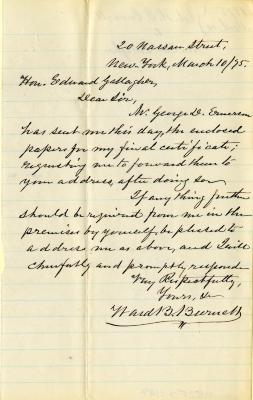 20 Nassau Street,
New-York, March 10/75.
Hon. Edward Gallagher,
Dear Sir,
Mr George D. Emerson
has sent me this day, the enclosed
papers for my final certificate;
requesting me to forward them to
your address, after doing so.
If any thing further
should be required from me in the
premises by yourself, be pleased to
address me as above, and I will
cheerfully and promptly respond
Very Respectfully,
Yours, &c
Ward B. Burnett